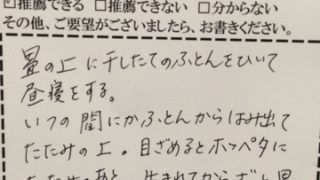 ☑推薦できる □推薦できない □分からない
その他、ご要望がございましたら、お書きください。
畳の上に干したてのふとんをひいて
昼寝をする。
いつの間にかふとんからはみ出て
たたみの上。目ざめるとホッペタに